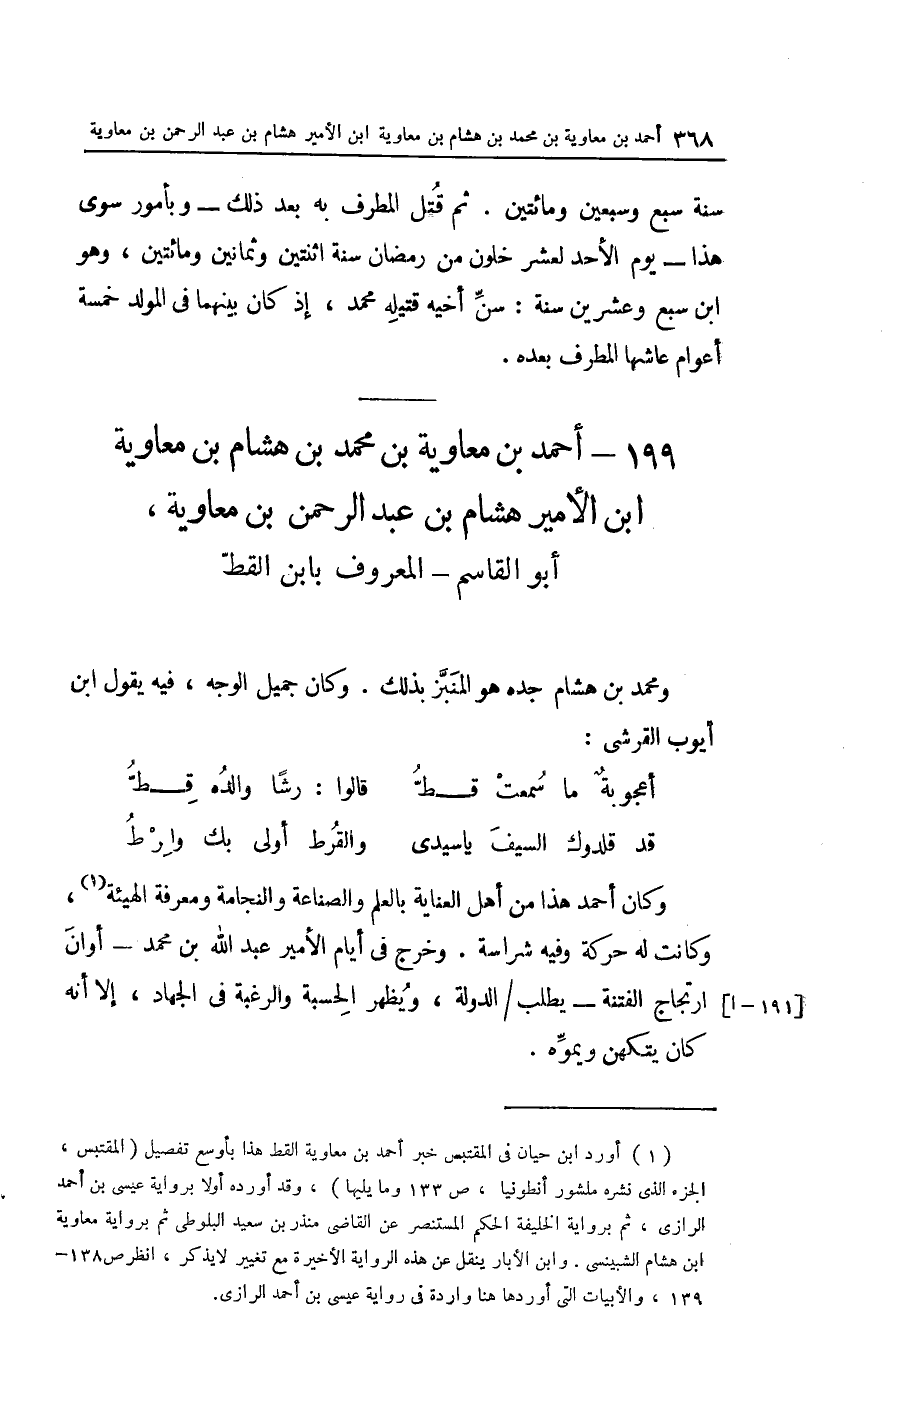 ٣٦٨ أحمد بن معاوية بن محمد بن هشام بن معاوية ابن الأمير هشام بن عبد الرحمن بن معاوية
سنة سبع وسبعين ومائتين . ثم قُتل المطرف به بعد ذلك – وبأمور سوى
هذا – يوم الأحد لعشر خلون من رمضان سنة اثنتين وثمانين ومائتين ، وهو
ابن سبع وعشرين سنة : سنِّ أخيه قتيلِه محمد ، إذ كان بينهما فى المولد خمسة
أعوام عاشها المطرف بعده .
١٩٩ – أحمد بن معاوية بن محمد بن هشام بن معاوية
ابن الأمير هشام بن عبد الرحمن بن معاوية ،
أبو القاسم – المعروف بابن القطّ
ومحمد بن هشام جده هو المنَبَّز بذلك . وكان جميل الوجه ، فيه يقول ابن
أيوب القرشى :
أعجوبةٌ ما سُمعتْ قــطُّ قالوا : رشًا والدُه قِــطُّ
قد قلدوك السيفَ ياسيدى والقُرط أولى بك وارْطُ
وكان أحمد هذا من أهل العناية بالعلم والصناعة والنجامة ومعرفة الهيئة(١) ،
وكانت له حركة وفيه شراسة . وخرج فى أيام الأمير عبد الله بن محمد – أوانَ
[١٩١-ا] ارتجاج الفتنة – يطلب/ الدولة ، ويُظهر الحِسبة والرغبة فى الجهاد ، إلا أنه
كان يتكهن ويموِّه .
(١) أورد ابن حيان فى المقتبس خبر أحمد بن معاوية القط هذا بأوسع تفصيل (المقتبس ،
الجزء الذى نشره ملشور أنطونيا ، ص ١٣٣ وما يليها) ، وقد أورده أولا برواية عيسى بن أحمد
الرازى ، ثم برواية الخليفة الحكم المستنصر عن القاضى منذر بن سعيد البلوطى ثم برواية معاوية
ابن هشام الشبينسى . وابن الأبار ينقل عن هذه الرواية الأخيرة مع تغيير لايذكر ، انظر ص١٣٨–
١٣٩ ، والأبيات التى أوردها هنا واردة فى رواية عيسى بن أحمد الرازى.